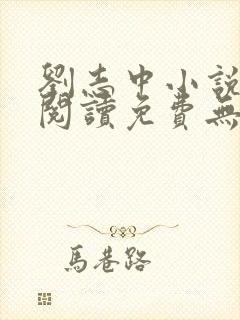 劉志中小說
閱讀免費無
馬巷路